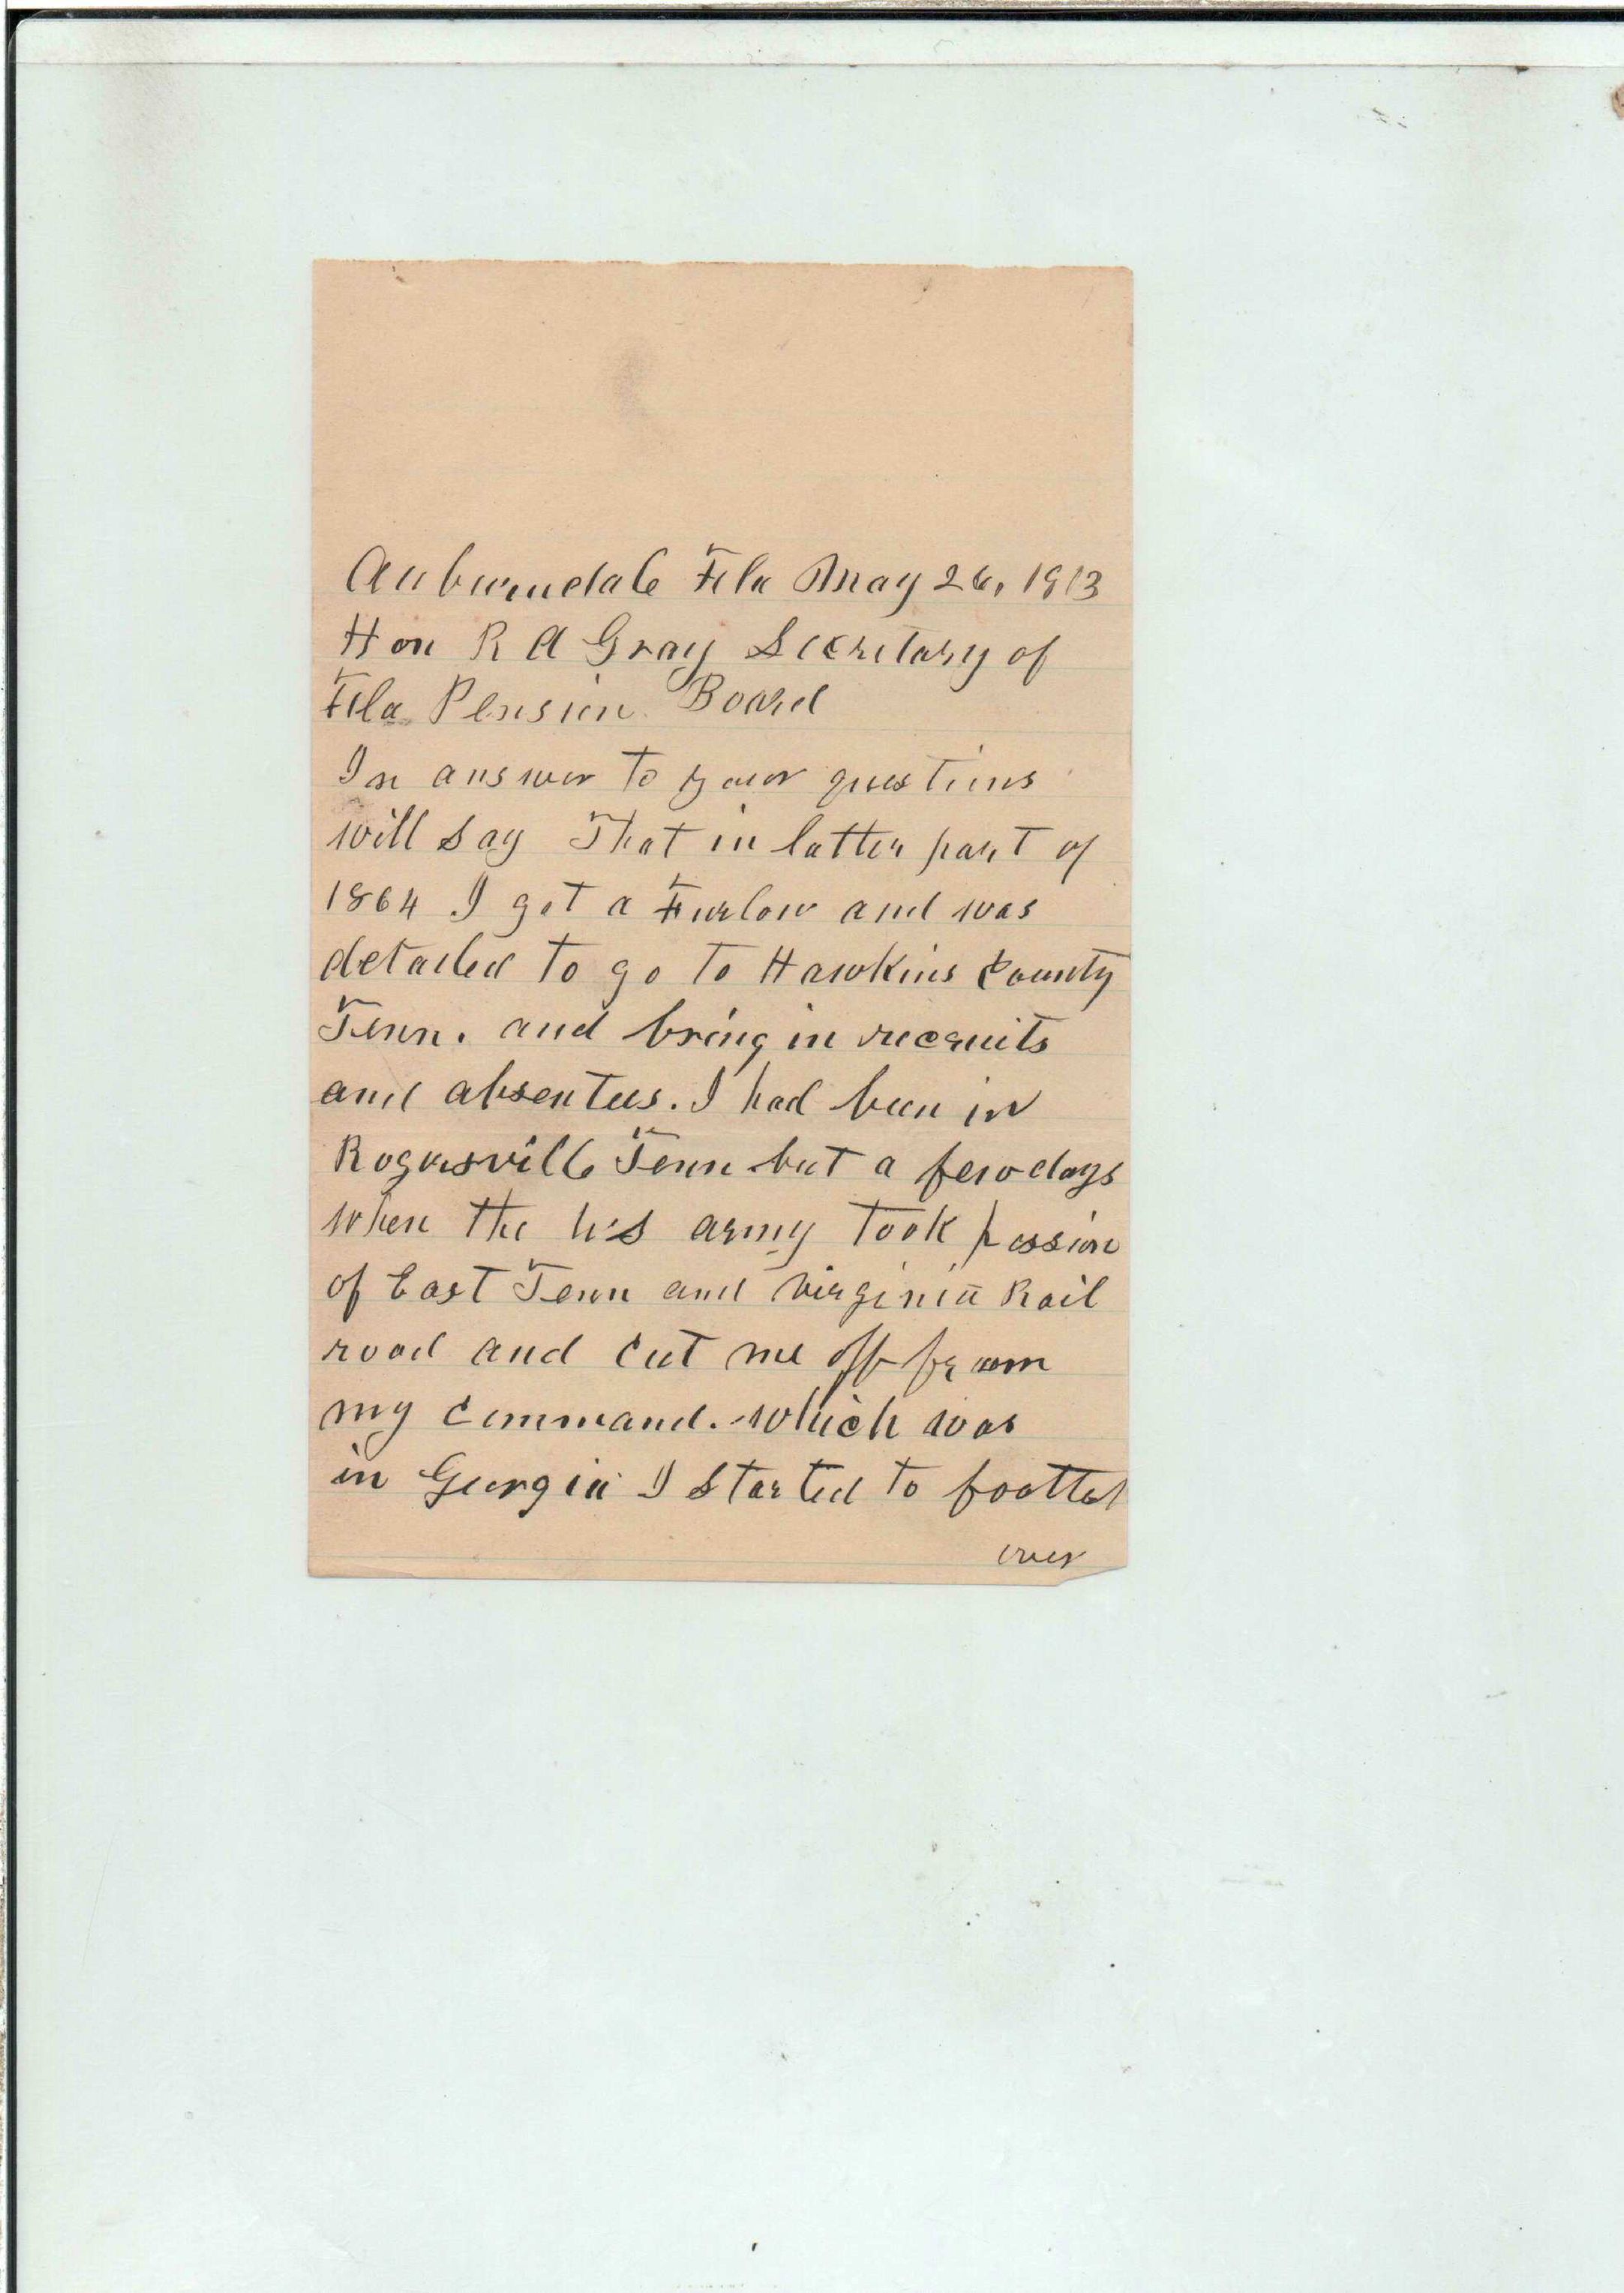 Auburndale Fla May 26, 1913
Hon R A Gray Secretary of
Fla Pension Board
In answer to your questions
will say That in latter part of
1864 I got a Furlow and was
detailed to go to Hawkins County
Tenn. and bring in recruits
and absentees. I had been in
Rogersville Tenn but a few days
when the US army took possion
of East Tenn and Virginia Rail
road and cut me off from
my command. which was
in Georgia I started to foot
over